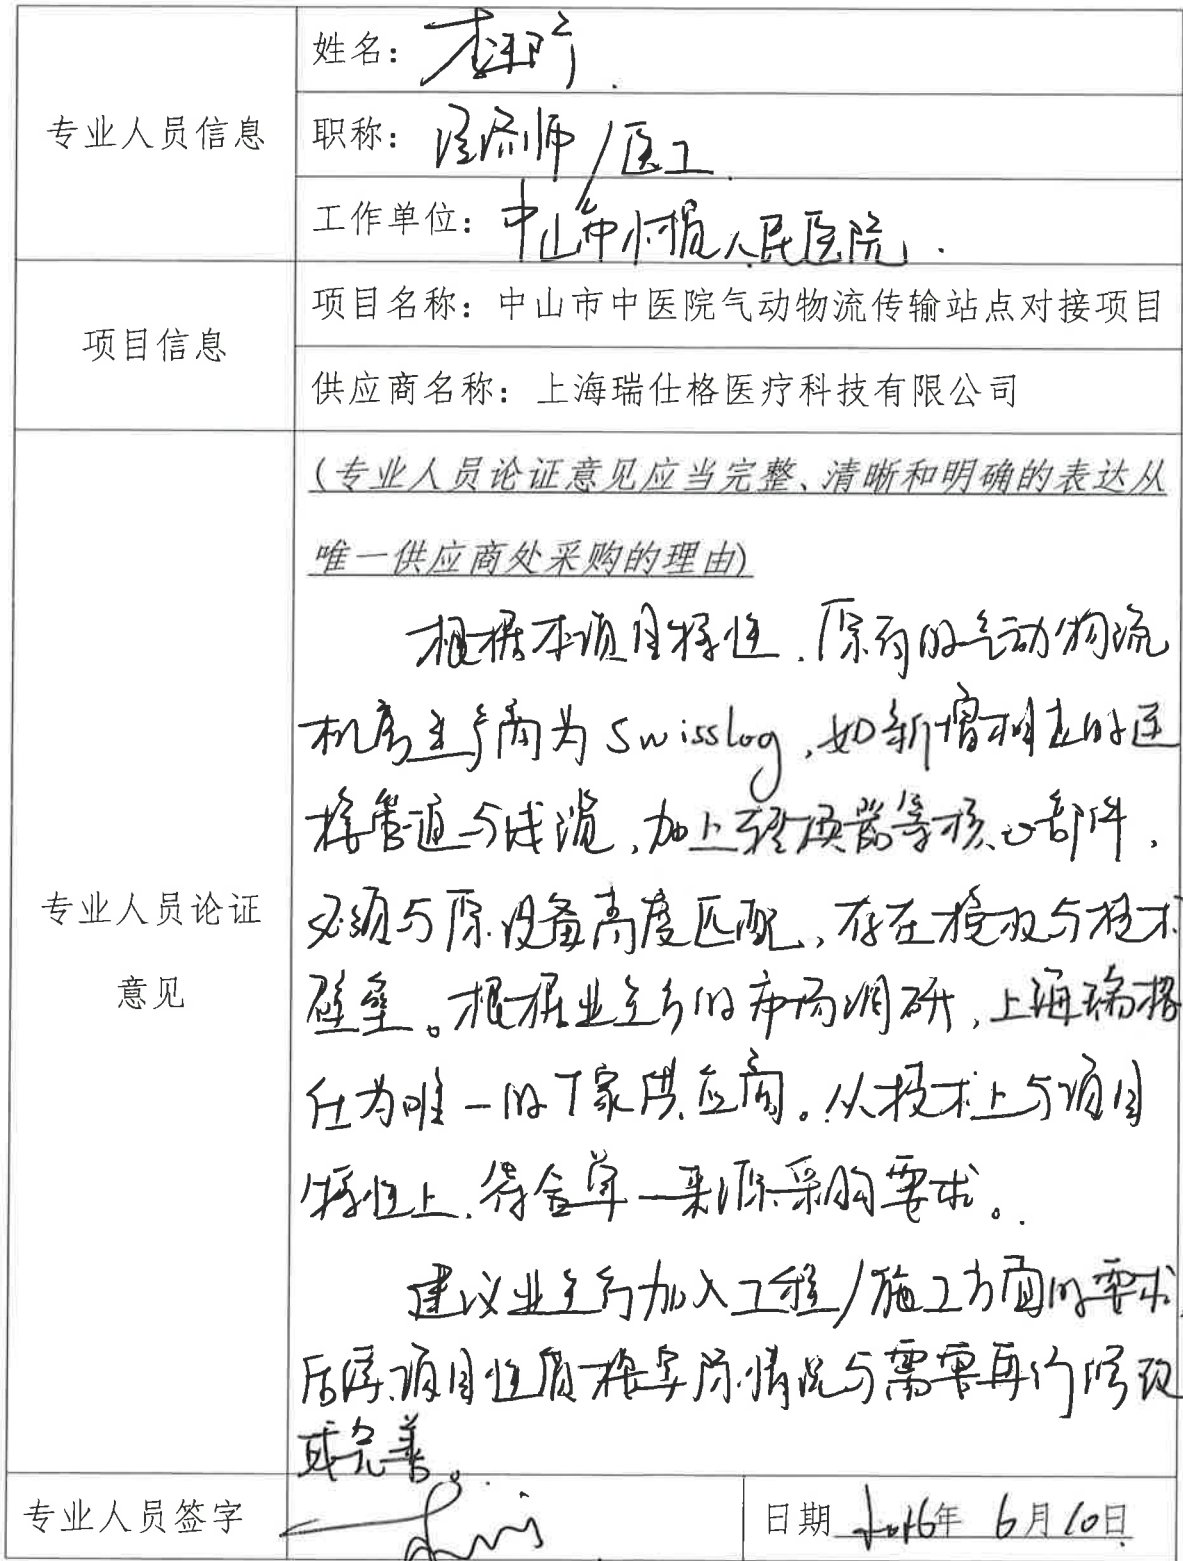 专业人员信息
姓名：
职称： 经济师/医工
工作单位： 中山市小榄人民医院.
项目信息
项目名称：中山市中医院气动物流传输站点对接项目
供应商名称：上海瑞仕格医疗科技有限公司
专业人员论证
意见
(专业人员论证意见应当完整、清晰和明确的表达从
唯一供应商处采购的理由)
根据本项目特性，原有的气动物流
机房生产商为Swisslog，如新增相应的连
接管道与线缆，加上转换器等核心部件，
必须与原设备高度匹配，存在授权与技术
壁垒。根据业主方的市场调研，上海瑞格
仕为唯一的一家供应商。从技术上与项目
特性上，符合单一来源采购要求。
建议业主方加入工程/施工方面的要求，
后续项目性质根实际情况与需要再行修改
或完善。
专业人员签字
日期 年 6月10日